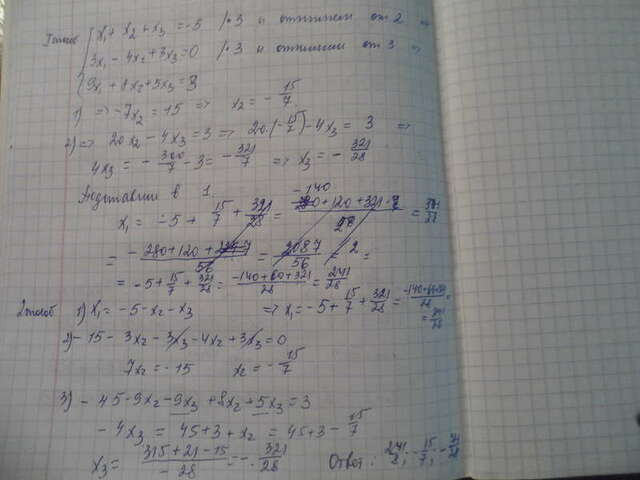 1 способ x₁ + x₂ + x₃ = -5 /·3 и отнимаем от 2 ⇒
3x₁ - 4x₂ + 3x₃ = 0 /·3 и отнимаем от 3 ⇒
9x₁ + 8x₂ + 5x₃ = 3
1) ⇒ -7x₂ = 15 ⇒ x₂ = -15/7
2) ⇒ 20x₂ - 4x₃ = 3 ⇒ 20·(-15/7) - 4x₃ = 3 ⇒
4x₃ = -300/7 - 3 = -321/7 ⇒ x₃ = -321/28
Подставим в 1.
x₁ = -5 + 15/7 + 321/28 =
= -5 + 15/7 + 321/28 = (-140 + 60 + 321)/28 = 241/28
2 способ 1) x₁ = -5 - x₂ - x₃ ⇒ x₁ = -5 + 15/7 + 321/28 =
= 241/28
2) -15 - 3x₂ - 3x₃ - 4x₂ + 3x₃ = 0
7x₂ = -15 x₂ = -15/7
3) -45 - 9x₂ - 9x₃ + 8x₂ + 5x₃ = 3
-4x₃ = 45 + 3 + x₂ = 45 + 3 - 15/7
x₃ = (315 + 21 - 15)/-28 = -321/28 Ответ: